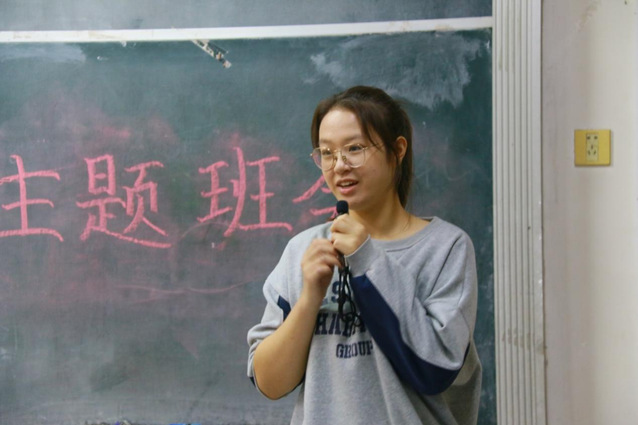 主题班会
GROUP